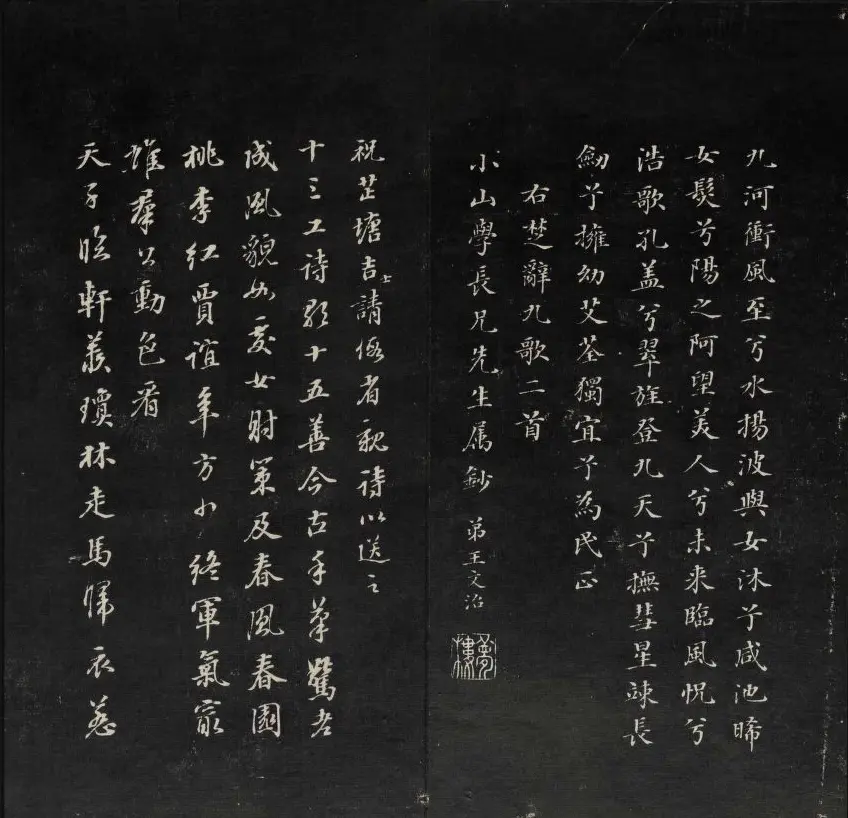 九河衝風至兮水揚波與女沐兮咸池晞
女髮兮陽之阿望美人兮未来臨風怳兮
浩歌孔盖兮翠旌登九天兮撫彗星竦長
劒兮擁幼艾荃獨宜兮為民正
右楚辭九歌二首
小山學長兄先生属鈔 弟王文治
夢樓
祝芷塘吉士請假省親詩以送之
十三工詩歌十五善今古手筆驚老
成風貌如處女射策及春風春園
桃李紅賈誼年方少終軍氣最
雄羣公動色看
天子臨軒羨瓊林走馬歸衣惹